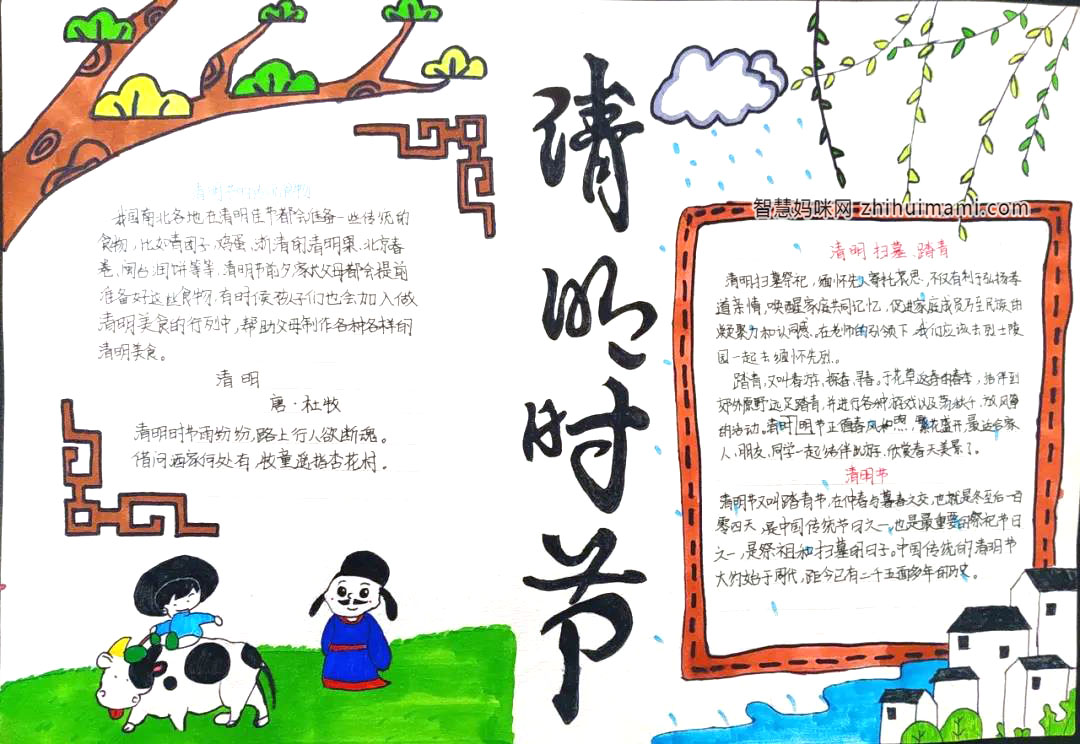 清明时节
清明节时的食物
我国南北各地在清明佳节都会准备一些传统的
食物,比如青团子、鸡蛋、浙清的清明果、北京春
卷、闽台润饼等等,清明节前夕家长父母都会提前
准备好这些食物,有时候孩子们也会加入做
清明美食的行列中,帮助父母制作各种各样的
清明美食。
清明
唐·杜牧
清明时节雨纷纷,路上行人欲断魂。
借问酒家何处有,牧童遥指杏花村。
智慧妈咪网 zhihuimami.com
清明扫墓、踏青
清明扫墓祭祀,缅怀先人寄托哀思,不仅有利于弘扬孝
道亲情,唤醒家庭共同记忆,促进家庭成员乃至民族的
凝聚力和认同感。在老师的引领下,我们应该去烈士陵
园一起去缅怀先烈。
踏青,又叫春游、探春、寻春。于花草返青的春季,结伴到
郊外原野远足踏青,并进行各种游戏以及荡秋千、放风筝
的活动。清明时节正值春风和煦,繁花盛开,最适合家
人、朋友、同学一起结伴出游、欣赏春天美景了。
清明节
清明节又叫踏青节,在仲春与暮春之交,也就是冬至后一百
零四天,是中国传统节日之一,也是最重要的祭祀节日
之一,是祭祖和扫墓的日子。中国传统的清明节
大约始于周代,距今已有二千五百多年的历史。